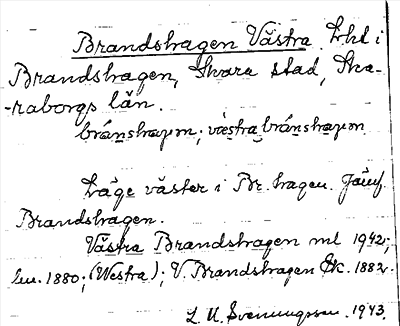 Brandshagen Västra. Lht i
Brandshagen, Skara stad, Ska-
-raborgs län.
bránshagən; västra bránshagən
Läge väster i Br. hagen. Jämf.
Brandshagen.
Västra Brandshagen mt 1942;
Len. 1880; (Westra); V. Brandshagen Ek. 1882.
L. U. Svenungsson. 1943.